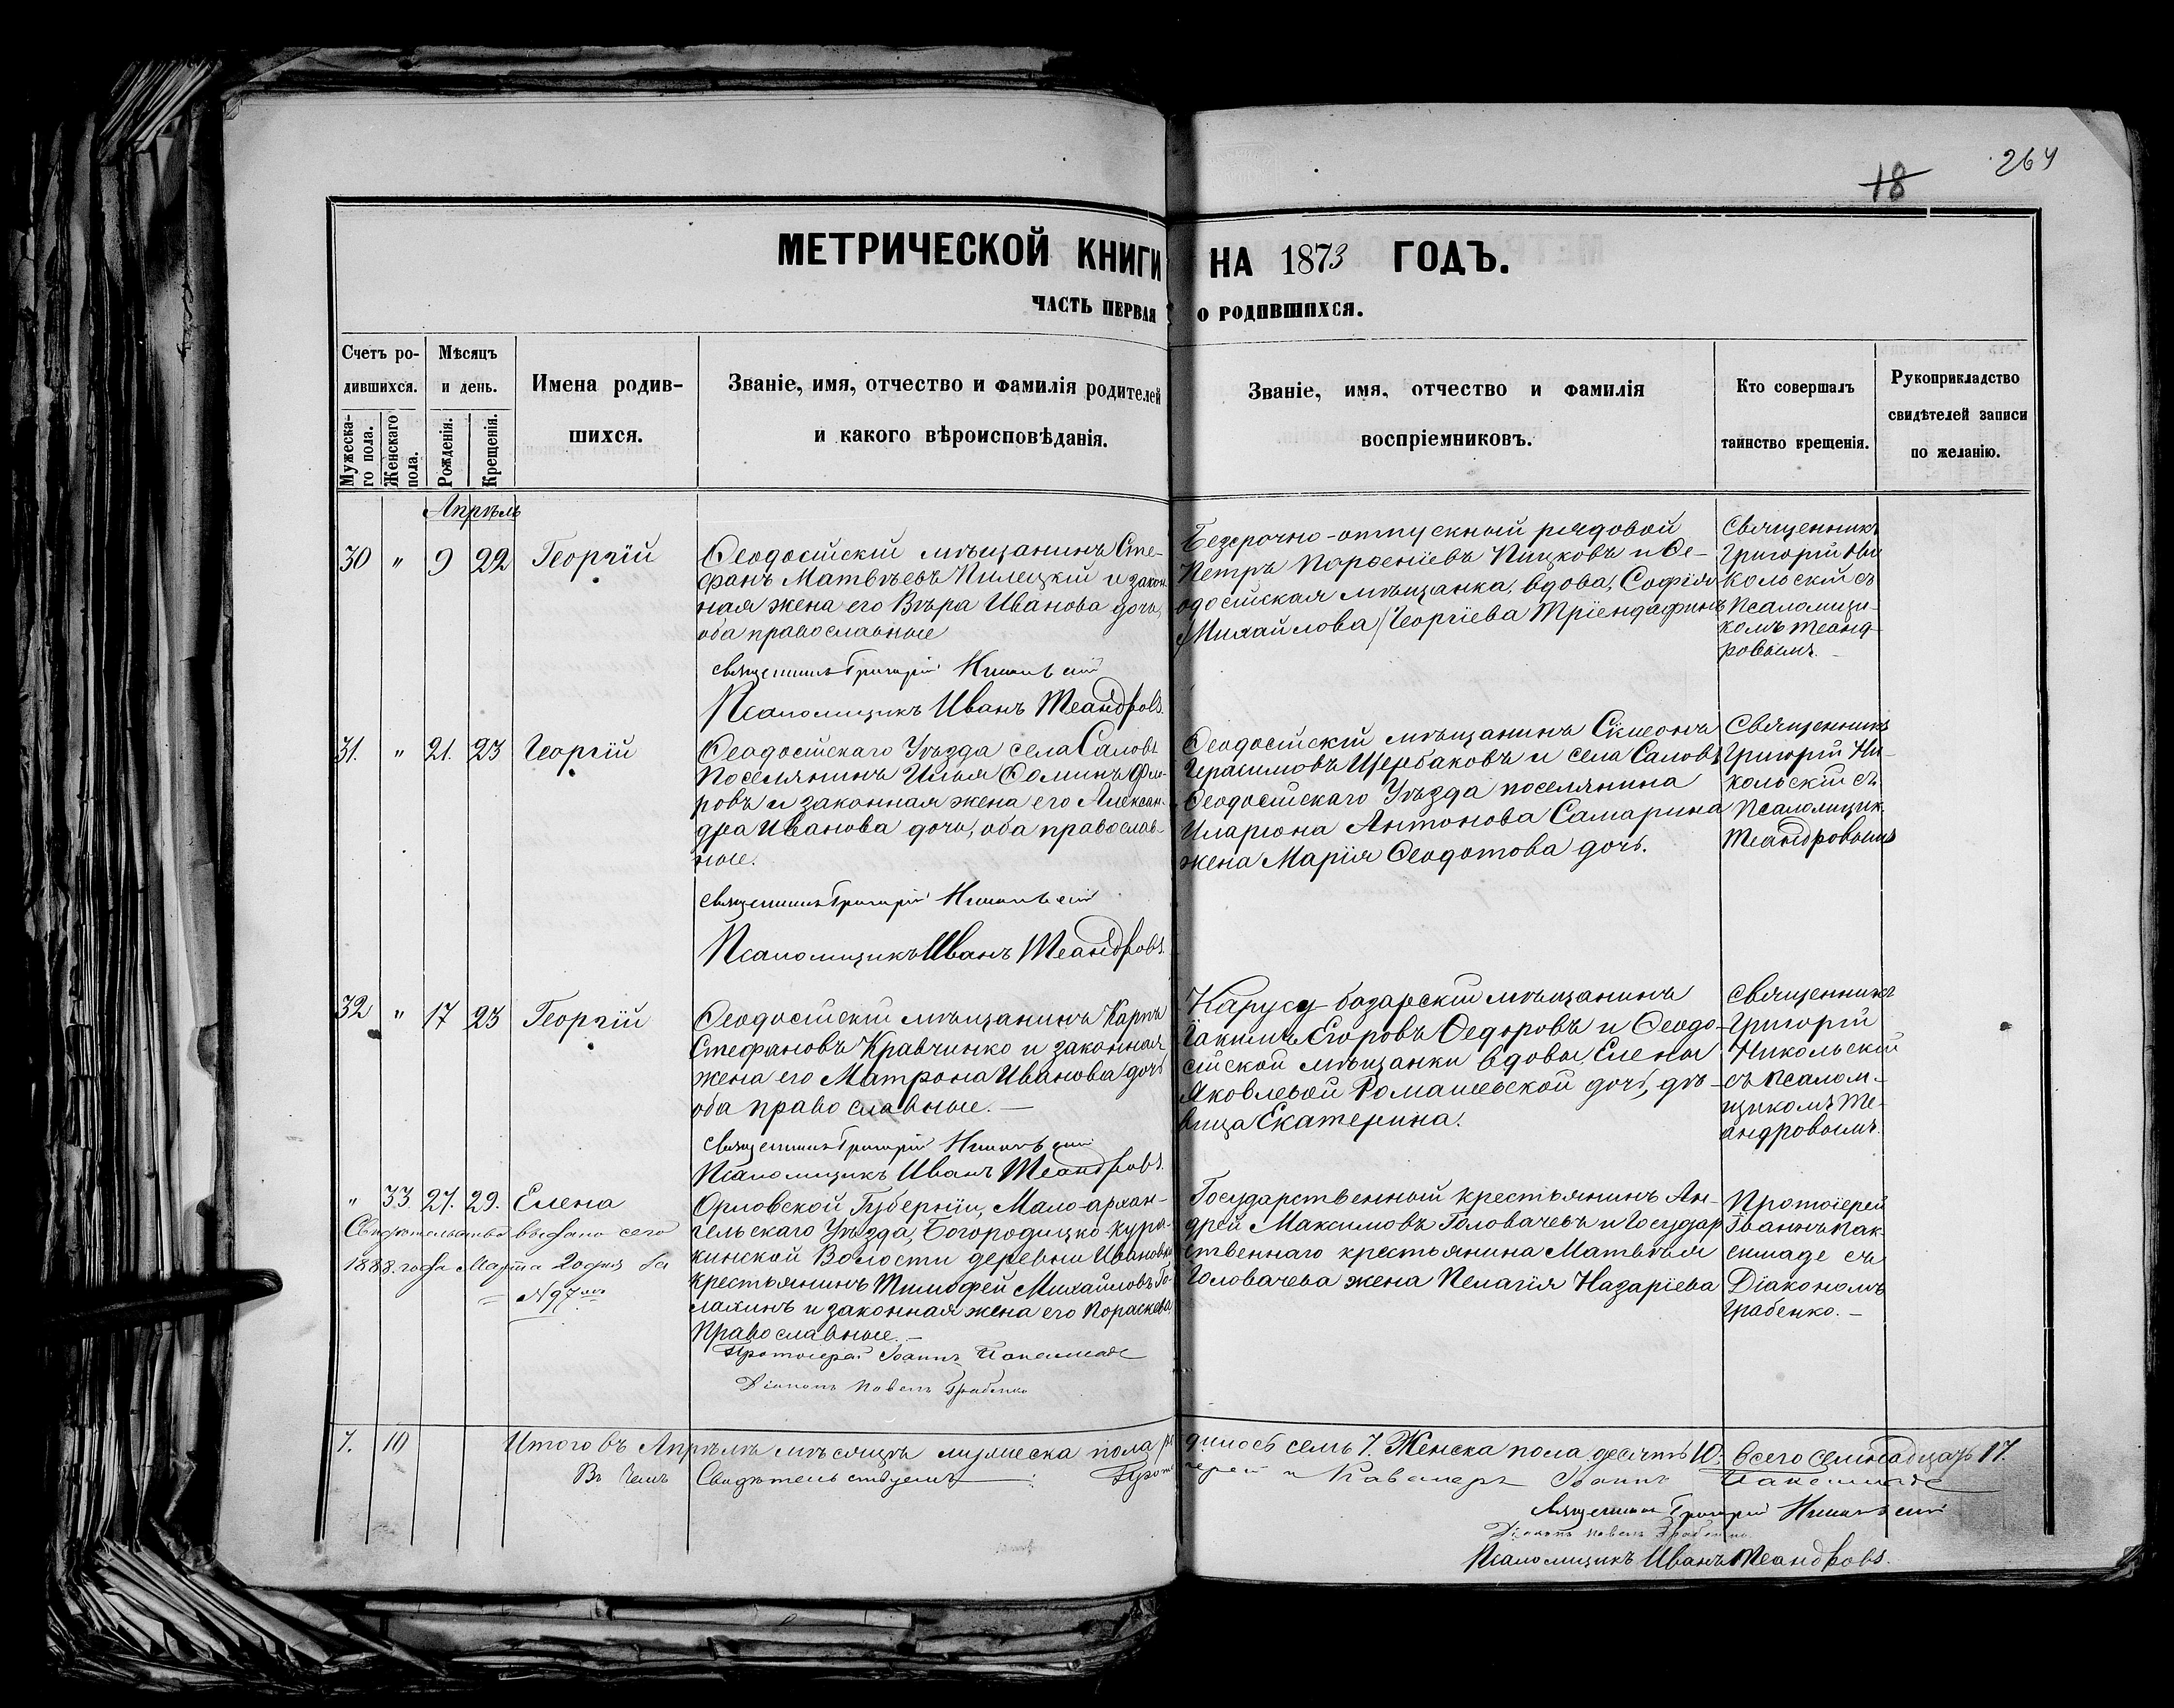 264
18
МЕТРИЧЕСКОЙ КНИГИ НА 1873 ГОДЪ.
ЧАСТЬ ПЕРВАЯ О РОДИВШИХСЯ.
Счетъ ро-
дившихся.
Мужеска-
го пола.
Женскаго
пола.
Мѣсяцъ
и день.
Рожденія.
Крещенія.
Имена родив-
шихся.
Званіе, имя, отчество и фамилія родителей
и какого вѣроисповѣданія.
Званіе, имя, отчество и фамилія
воспріемниковъ.
Кто совершалъ
таинство крещенія.
Рукоприкладство
свидѣтелей записи
по желанію.
Апрѣль
30 " 9 22 Георгій
Ѳеодосійскій мѣщанинъ Сте-
фанъ Матвѣевъ Пилецкій и закон-
ная жена его Вѣра Иванова дочь,
оба православные
Священникъ Григорій Никольскій
Псаломщикъ Иванъ Теандровъ.
Безсрочно-отпускный рядовой
Петръ Парѳеніевъ Пицковъ и Ѳе-
одосійская мѣщанка, вдова, Софія
Михайлова Георгіева Тріендафилъ
Священникъ
Григорій Ни
кольскій съ
Псаломщи-
комъ Теанд-
ровымъ.
31. " 21. 23 Георгій
Ѳеодосійскаго Уѣзда села Саловъ
Поселянинъ Илья Ѳоминъ Фле-
ровъ и законная жена его Алексан-
дра Иванова дочь, оба православ-
ные.
Священникъ Григорій Никольскій
Псаломщикъ Иванъ Теандровъ.
Ѳеодосійскій мѣщанинъ Сімеонъ
Герасимовъ Щербаковъ и села Саловъ
Ѳеодосійскаго Уѣзда поселянина
Иларіона Антонова Самарина
жена Марія Ѳеодотова дочь.
Священникъ
Григорій Ни-
кольскій съ
Псаломщик.
Теандровымъ
32 " 17 23 Георгій
Ѳеодосійскій мѣщанинъ Карпъ
Стефановъ Кравчинко и законная
жена его Матрона Иванова дочь
оба православные.
Священникъ Григорій Никольскій
Псаломщикъ Иванъ Теандровъ.
Карусу-базарскій мѣщанинъ
Іакимъ Егоровъ Ѳедоровъ и Ѳеодо-
сійской мѣщанки вдовы Елены
Яковлевой Ромашевской дочь, дѣ-
вица Екатерина.
Священникъ
Григорій
Никольскій
съ Псалом-
щикомъ Те-
андровымъ.
" 33. 27. 29. Елена
Свидѣтельство выдано сего
1888. года Марта 20 дня за
№ 97
Орловской Губерніи, Мало-архан-
гельскаго Уѣзда, Богородицко-кура-
кинской Волости деревни Ивановки
крестьянинъ Тимофей Михайловъ Го-
лахинъ и законная жена его Пораскева
Православные.
Протоіерей Іоаннъ Пакемиаде
Діаконъ Павелъ Грабенко
Государственный крестьянинъ Ан-
дрей Максимовъ Головачевъ и Государ
ственнаго крестьянина Матвѣя
Головачева жена Пелагія Назаріева
Протоіерей
Іоаннъ Пак-
симаде съ
Діакономъ
Грабенко.
7. 10 Итого въ Апрѣлѣ мѣсяцѣ мужеска пола родилось семь 7. Женска пола десять 10. всего семнадцать 17.
Въ чемъ Свидѣтельствуемъ: Протоіерей и Кавалеръ Іоаннъ
Священникъ Григорій Никольскій
Діаконъ Павелъ Грабенко
Псаломщикъ Иванъ Теандровъ.